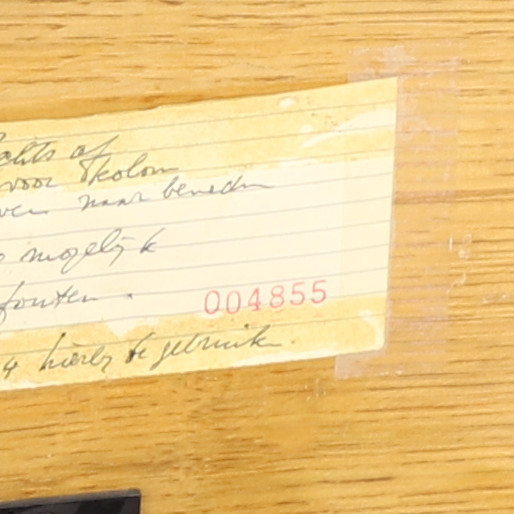 voor kolom
naar beneden
mogelijk
fouten.
004855
hierbij te gebruik.